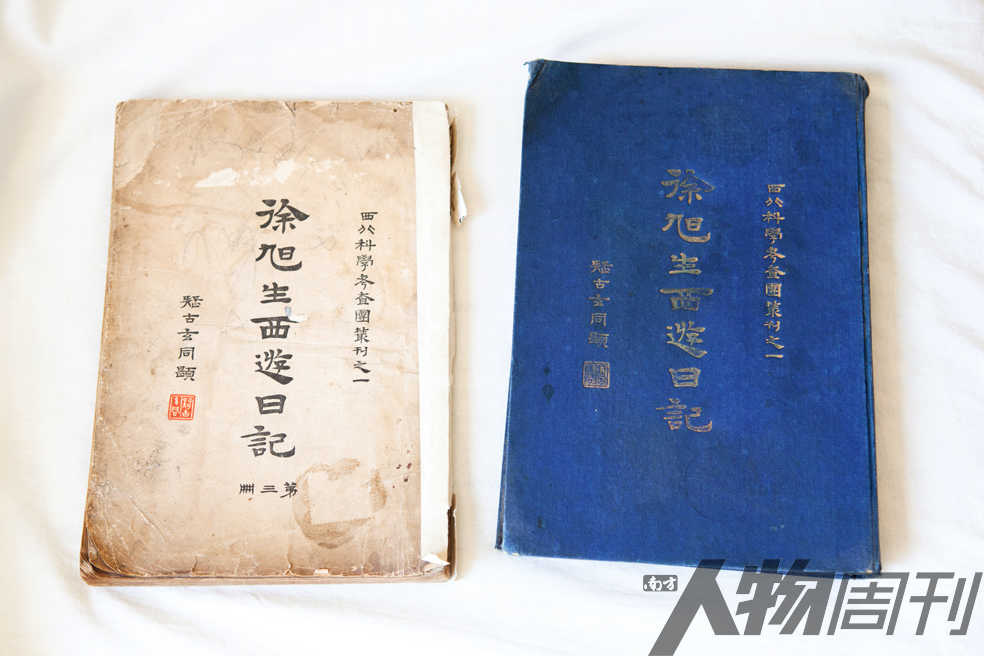 西行科學考查團叢刊之一
徐旭生西遊日記
第三冊
疑古玄同題
西行科學考查團叢刊之一
徐旭生西遊日記
疑古玄同題
南方
人物周刊